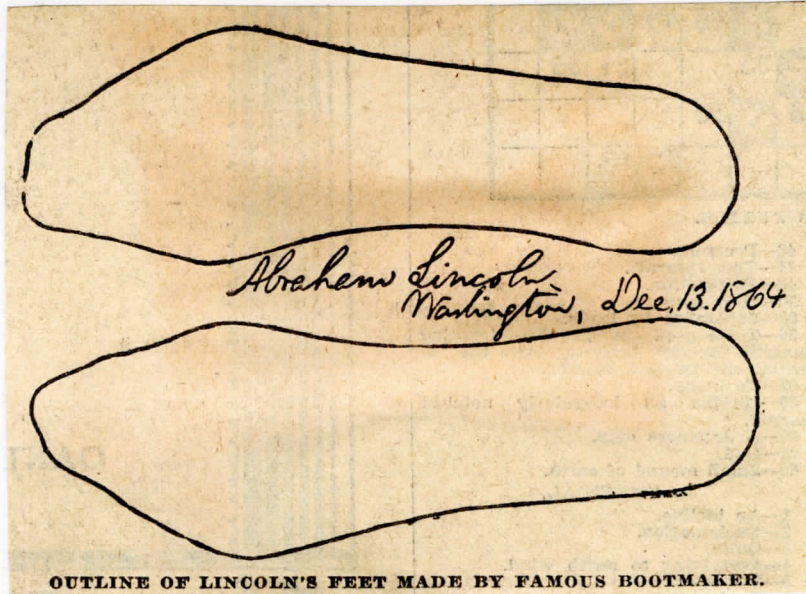 Abraham Lincoln
Washington, Dec. 13. 1864
OUTLINE OF LINCOLN'S FEET MADE BY FAMOUS BOOTMAKER.